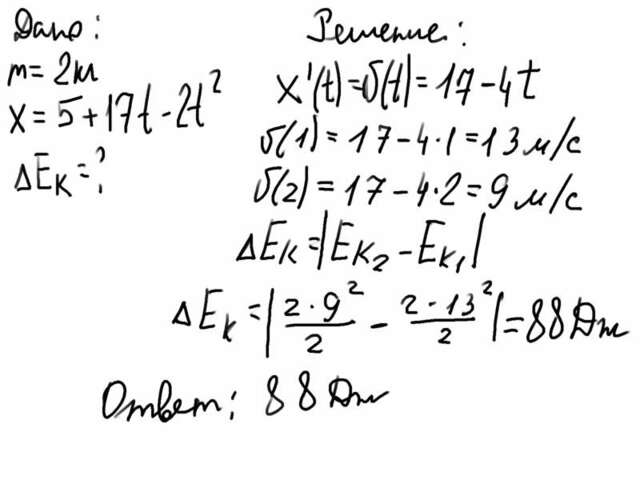 Дано:
m = 2кг
x = 5 + 17t - 2t²
ΔEк = ?
Решение:
x'(t) = υ(t) = 17 - 4t
υ(1) = 17 - 4·1 = 13 м/с
υ(2) = 17 - 4·2 = 9 м/с
ΔEк = |Eк₂ - Eк₁|
ΔEк = |2·9²/2 - 2·13²/2| = 88 Дж
Ответ: 88 Дж